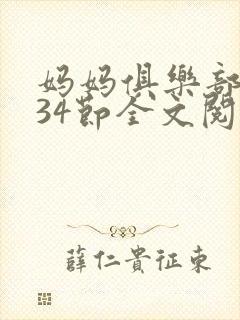 妈妈俱樂部
34節全文閱
薛仁貴征東